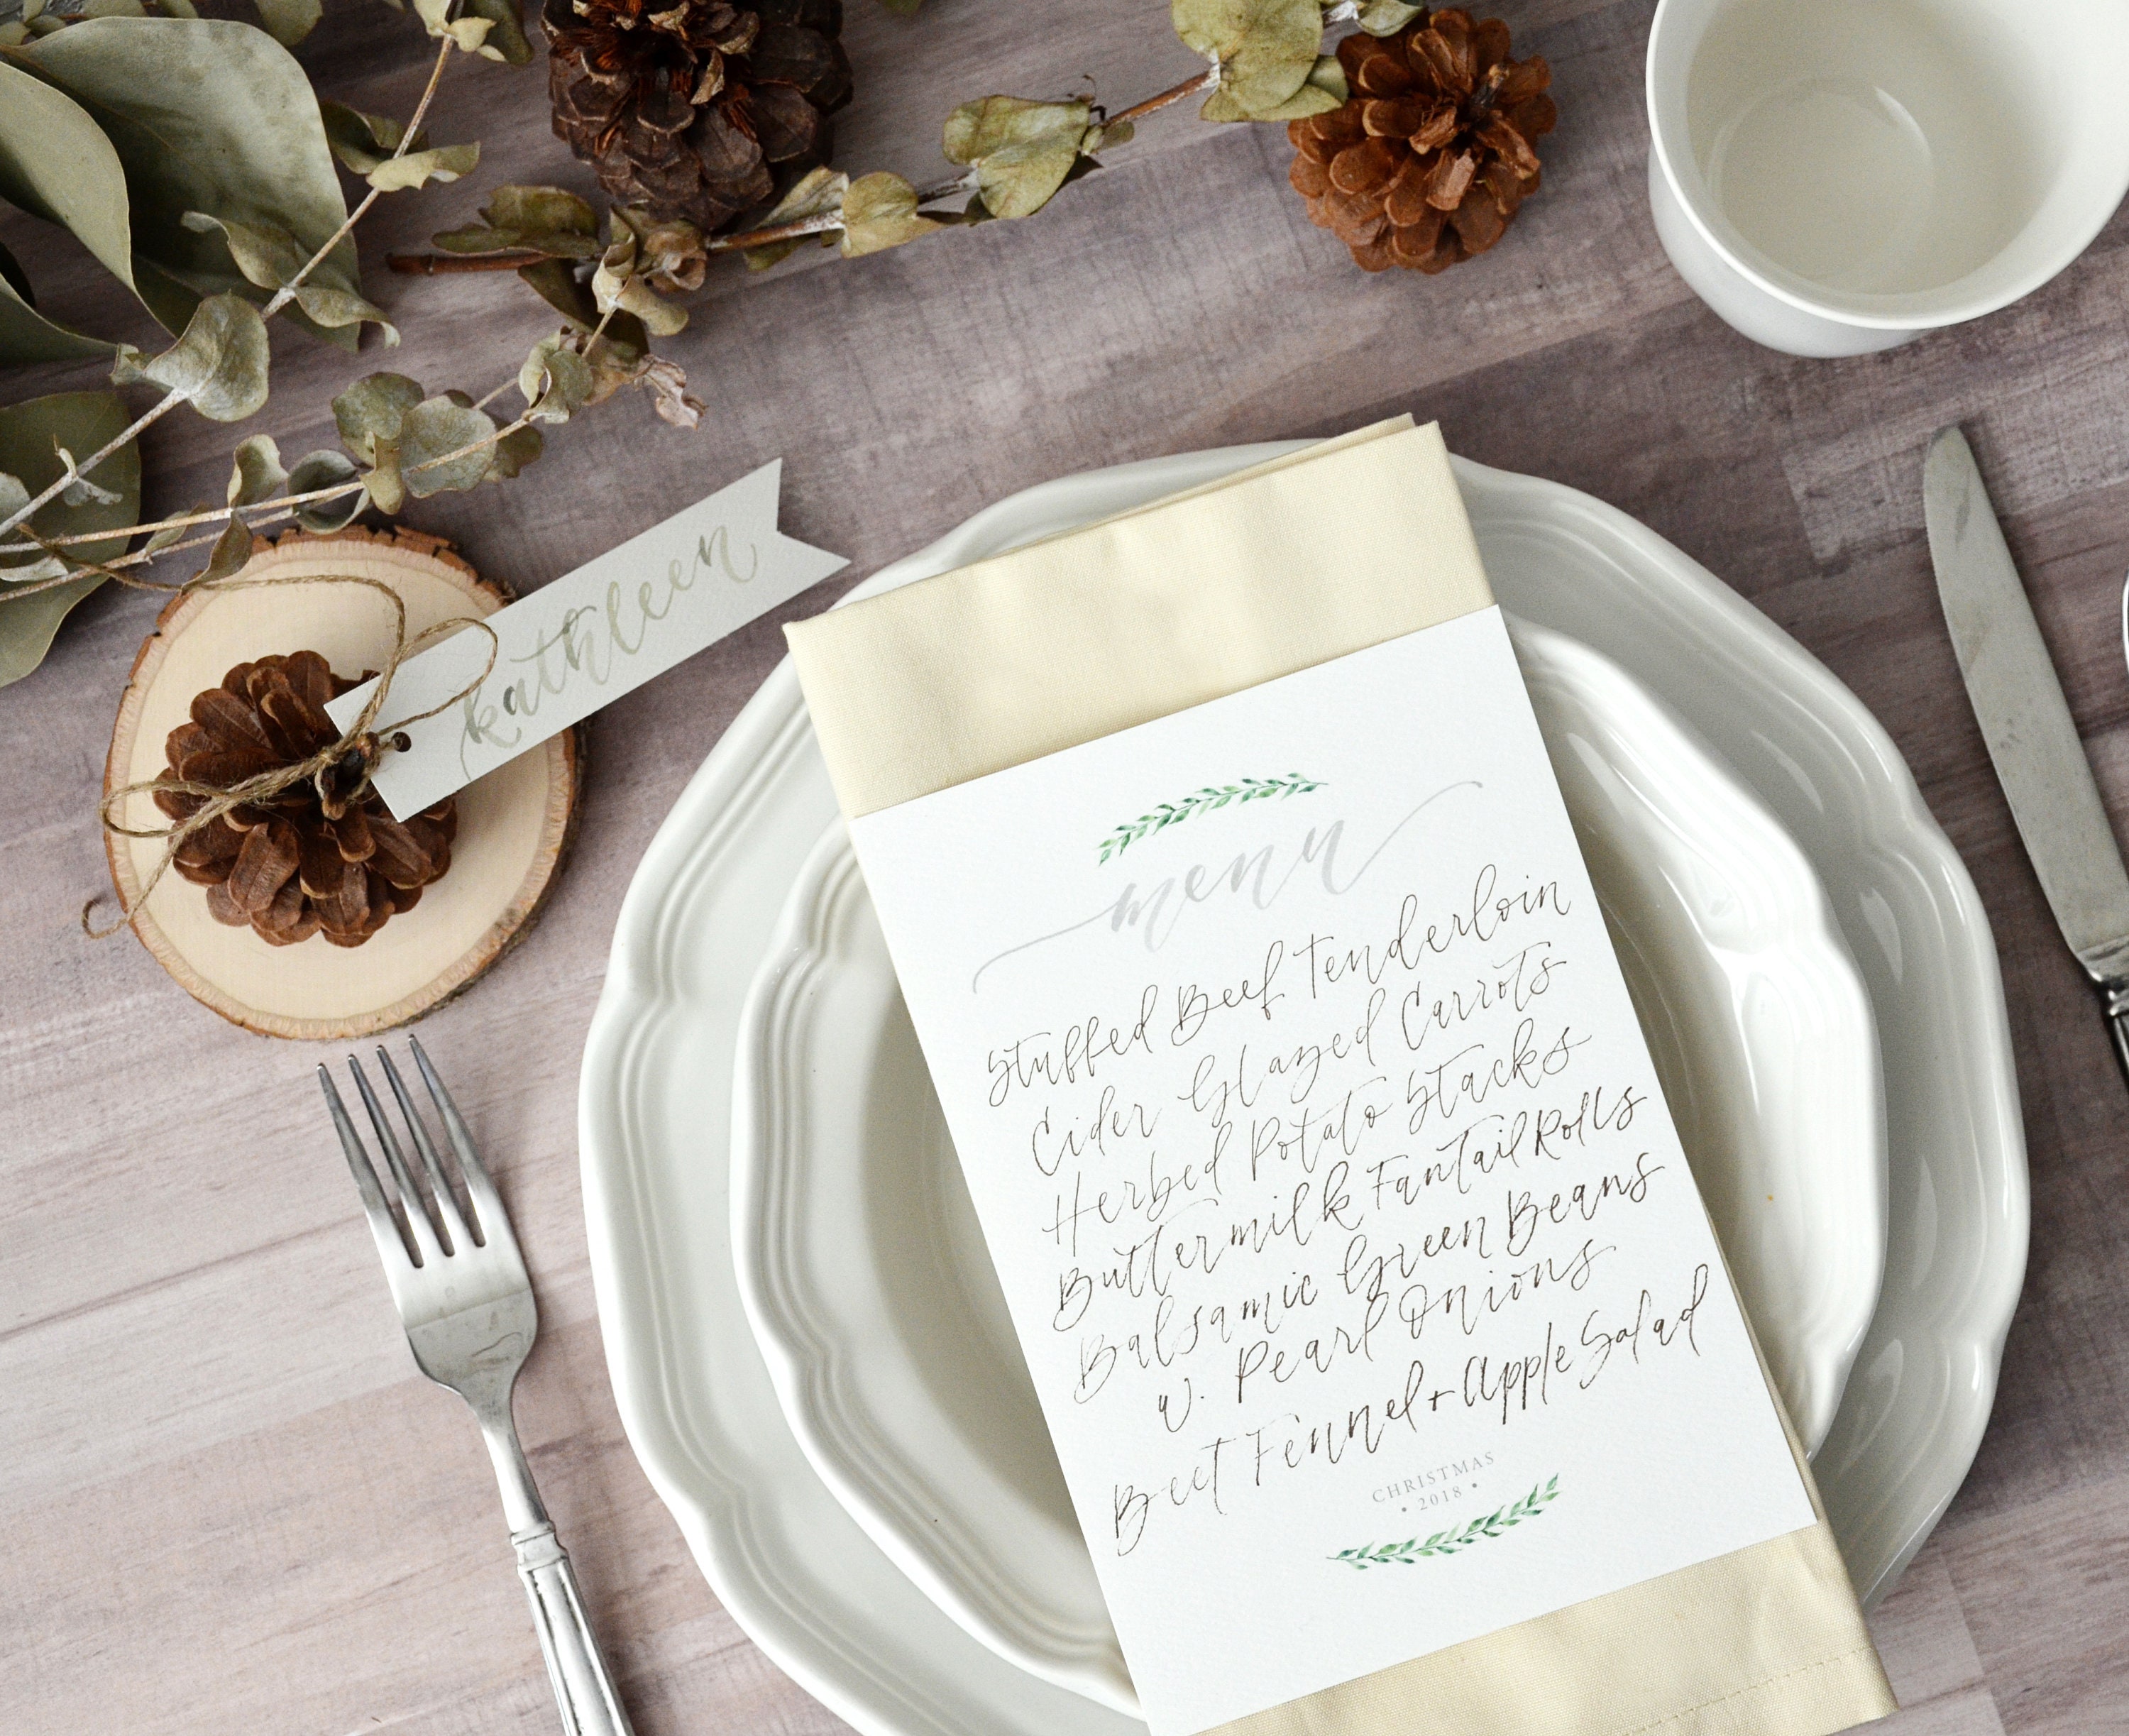 kathleen
menu
Stuffed Beef Tenderloin
Cider Glazed Carrots
Herbed Potato Stacks
Buttermilk Fantail Rolls
Balsamic Green Beans
w. Pearl Onions
Beet Fennel + Apple Salad
CHRISTMAS
• 2018 •